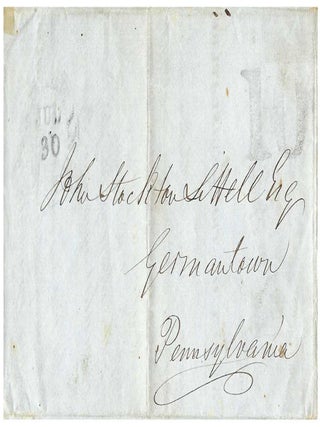 JUL
30
John Stockton Littell Esq
Germantown
Pennsylvania